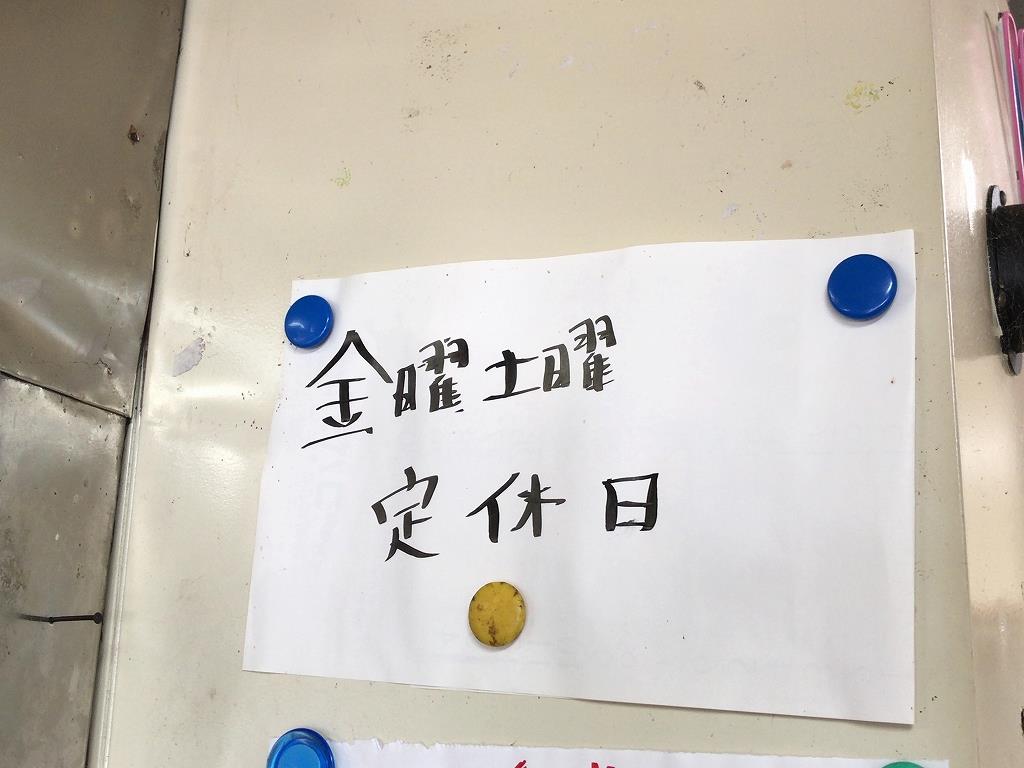 金曜土曜
定休日